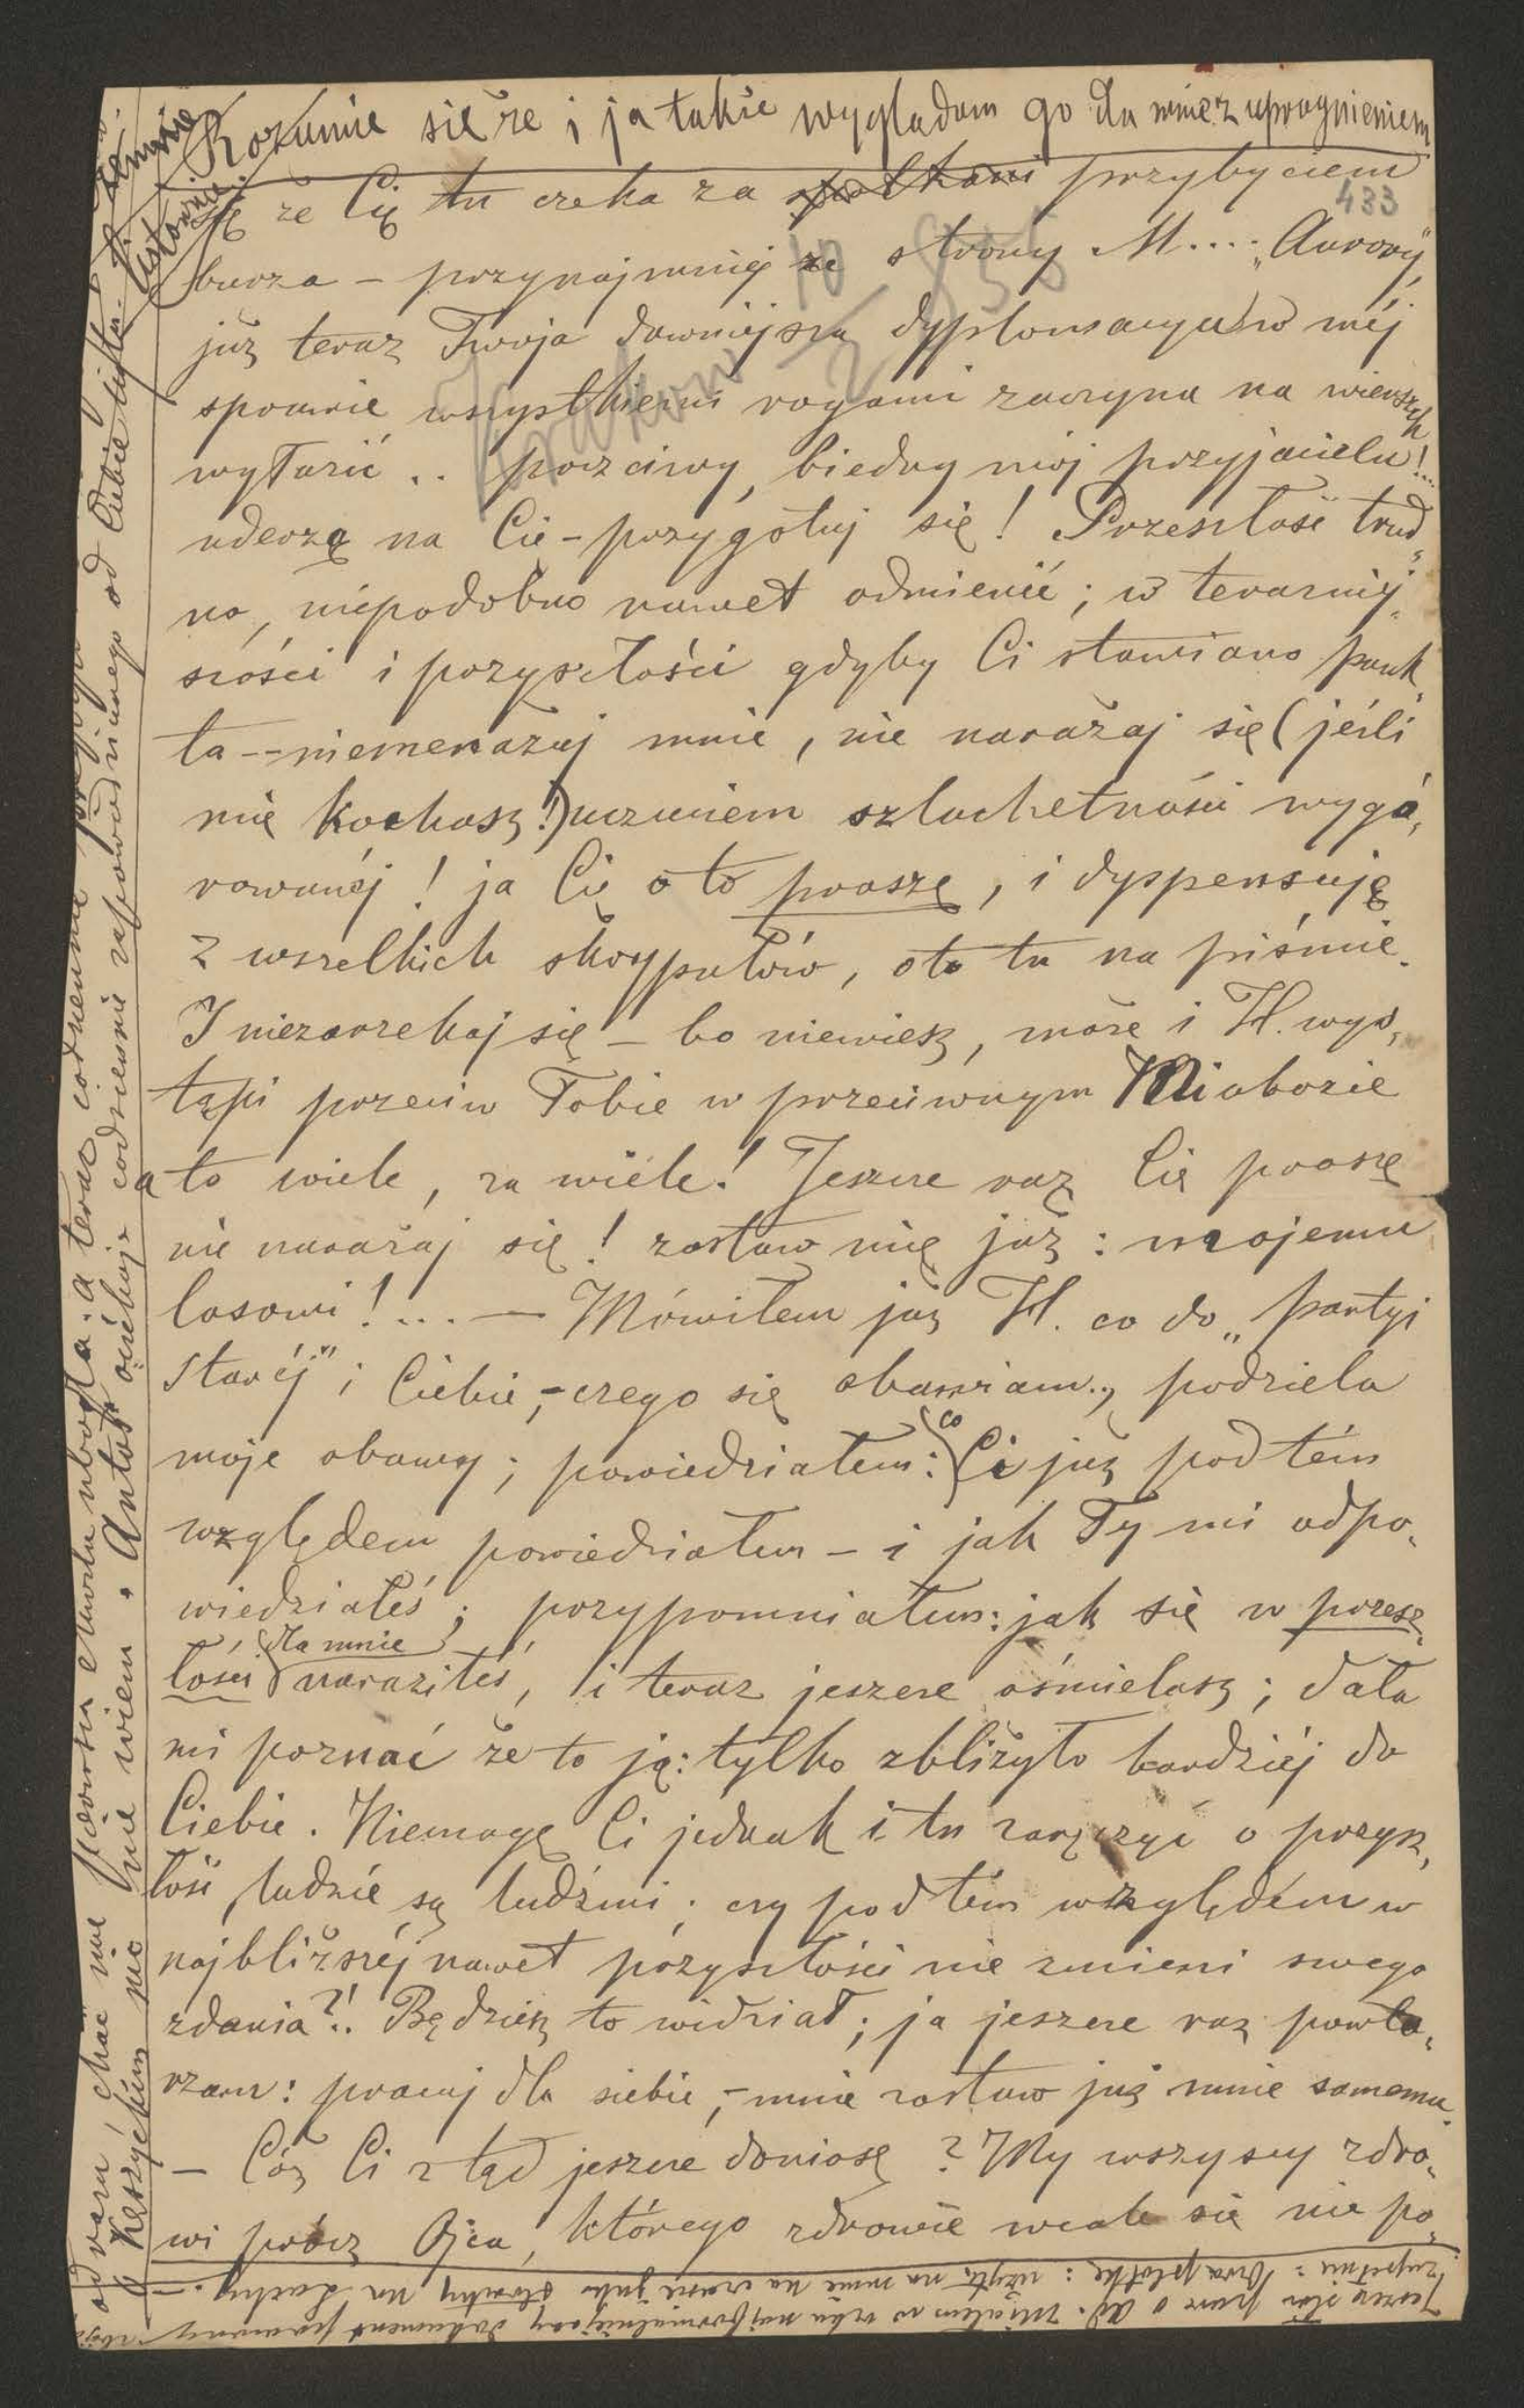 Rozumie się że i ja także wyglądam go dla mnie z upragnieniem
433
się że Cię tu czeka za przybyciem
burza – przynajmniej ze strony M.... „Aurory"
już teraz Twoja dawniejsza dyplomacya w méj
sprawie wszystkiemi rogami zaczyna na wierzch
wyłazić .. poczciwy, biedny mój przyjacielu!...
uderzą na Cię – przygotuj się! Przeszłość trud„
no, niepodobno nawet odmienić; w teraźniej„
szości i przyszłości gdyby Ci stawiano punk„
ta -- niemenażuj mnie, nie narażaj się (jeśli
mię kochasz!) uczuciem szlachetności wygó„
rowanéj! ja Cię o to proszę, i dyspensuję
z wszelkich skrypułów, oto tu na piśmie.
I niezarzekaj się – bo niewiesz, może i H. wys„
tąpi przeciw Tobie w przeciwnym obozie
a to wiele, za wiele! Jeszcze raz Cię proszę
nie narażaj się! zostaw mię już: mojemu
losowi!... — Mówiłem już H. co do „partyi
staréj" i Ciebie, – czego się obawiam., podziela
moje obawy; powiedziałem: co Ci już pod tém
względem powiedziałem – i jak Ty mi odpo„
wiedziałeś; przypomniałem: jak się w przesz„
łości dla mnie naraziłeś, i teraz jeszcze ośmielasz; dała
mi poznać że to ją: tylko zbliżyło bardziéj do
Ciebie. Niemogę Ci jednak i tu zaręczyć o przysz„
łość, ludzie są ludźmi; czy pod tém względém w
najbliższéj nawet przyszłości nie zmieni swego
zdania?!. Będziesz to widział; ja jeszcze raz powta„
rzam: pracuj dla siebie, – mnie zostaw już mnie samemu.
– Cóż Ci ztąd jeszcze doniosę? My wszyscy zdro„
wi prócz Ojca, którego zdrowie wcale się nie po„
Jeszcze słów parę o Ad. Miałem w ręku najformalniejszy dokument
zupełnie: użyto na mnie na
a teraz codziennie
Kęszyckim nic nie wiem. Antoś oczekuje codziennie zapowiedzianego od Ciebie listu.